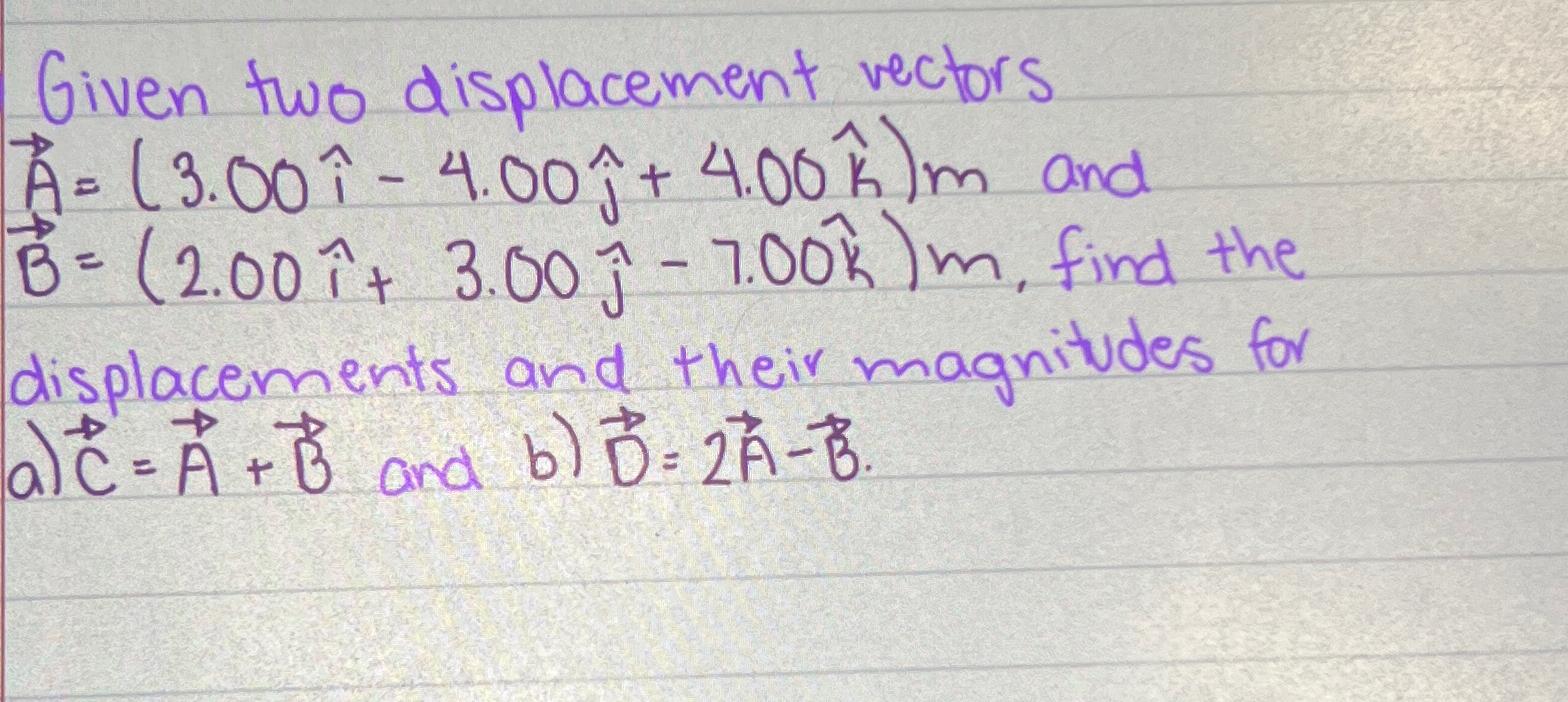 Given two displacement vectors
A⃗ = (3.00 î - 4.00 ĵ + 4.00 k̂)m and
B⃗ = (2.00 î + 3.00 ĵ - 7.00 k̂)m, find the
displacements and their magnitudes for
a) C⃗ = A⃗ + B⃗ and b) D⃗ = 2A⃗ - B⃗.